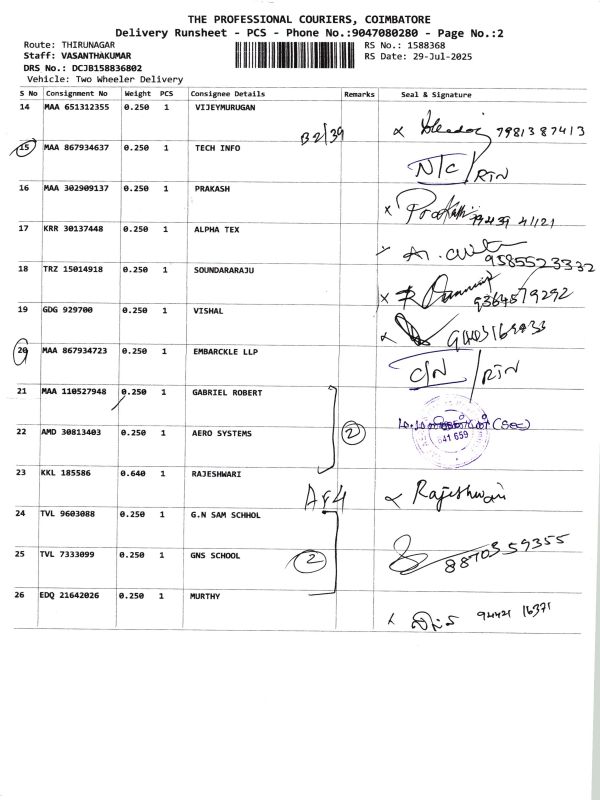 THE PROFESSIONAL COURIERS, COIMBATORE
Delivery Runsheet - PCS - Phone No.:9047080280 - Page No.:2
Route: THIRUNAGAR RS No.: 1588368
Staff: VASANTHAKUMAR RS Date: 29-Jul-2025
DRS No.: DCJB158836802
Vehicle: Two Wheeler Delivery
S No Consignment No Weight PCS Consignee Details Remarks Seal & Signature
14 MAA 651312355 0.250 1 VIJEYMURUGAN
B2/39 7981387413
15 MAA 867934637 0.250 1 TECH INFO
N/C / RTN
16 MAA 302909137 0.250 1 PRAKASH
Prakash
17 KRR 30137448 0.250 1 ALPHA TEX
9585523332
18 TRZ 15014918 0.250 1 SOUNDARARAJU
9364579292
19 GDG 929700 0.250 1 VISHAL
20 MAA 867934723 0.250 1 EMBARCKLE LLP
C/N / RTN
21 MAA 110527948 0.250 1 GABRIEL ROBERT
22 AMD 30813403 0.250 1 AERO SYSTEMS 2 641 659
23 KKL 185586 0.640 1 RAJESHWARI
Rajeshwari
24 TVL 9603088 0.250 1 G.N SAM SCHHOL
25 TVL 7333099 0.250 1 GNS SCHOOL 2 8870359355
26 EDQ 21642026 0.250 1 MURTHY
94421 16371